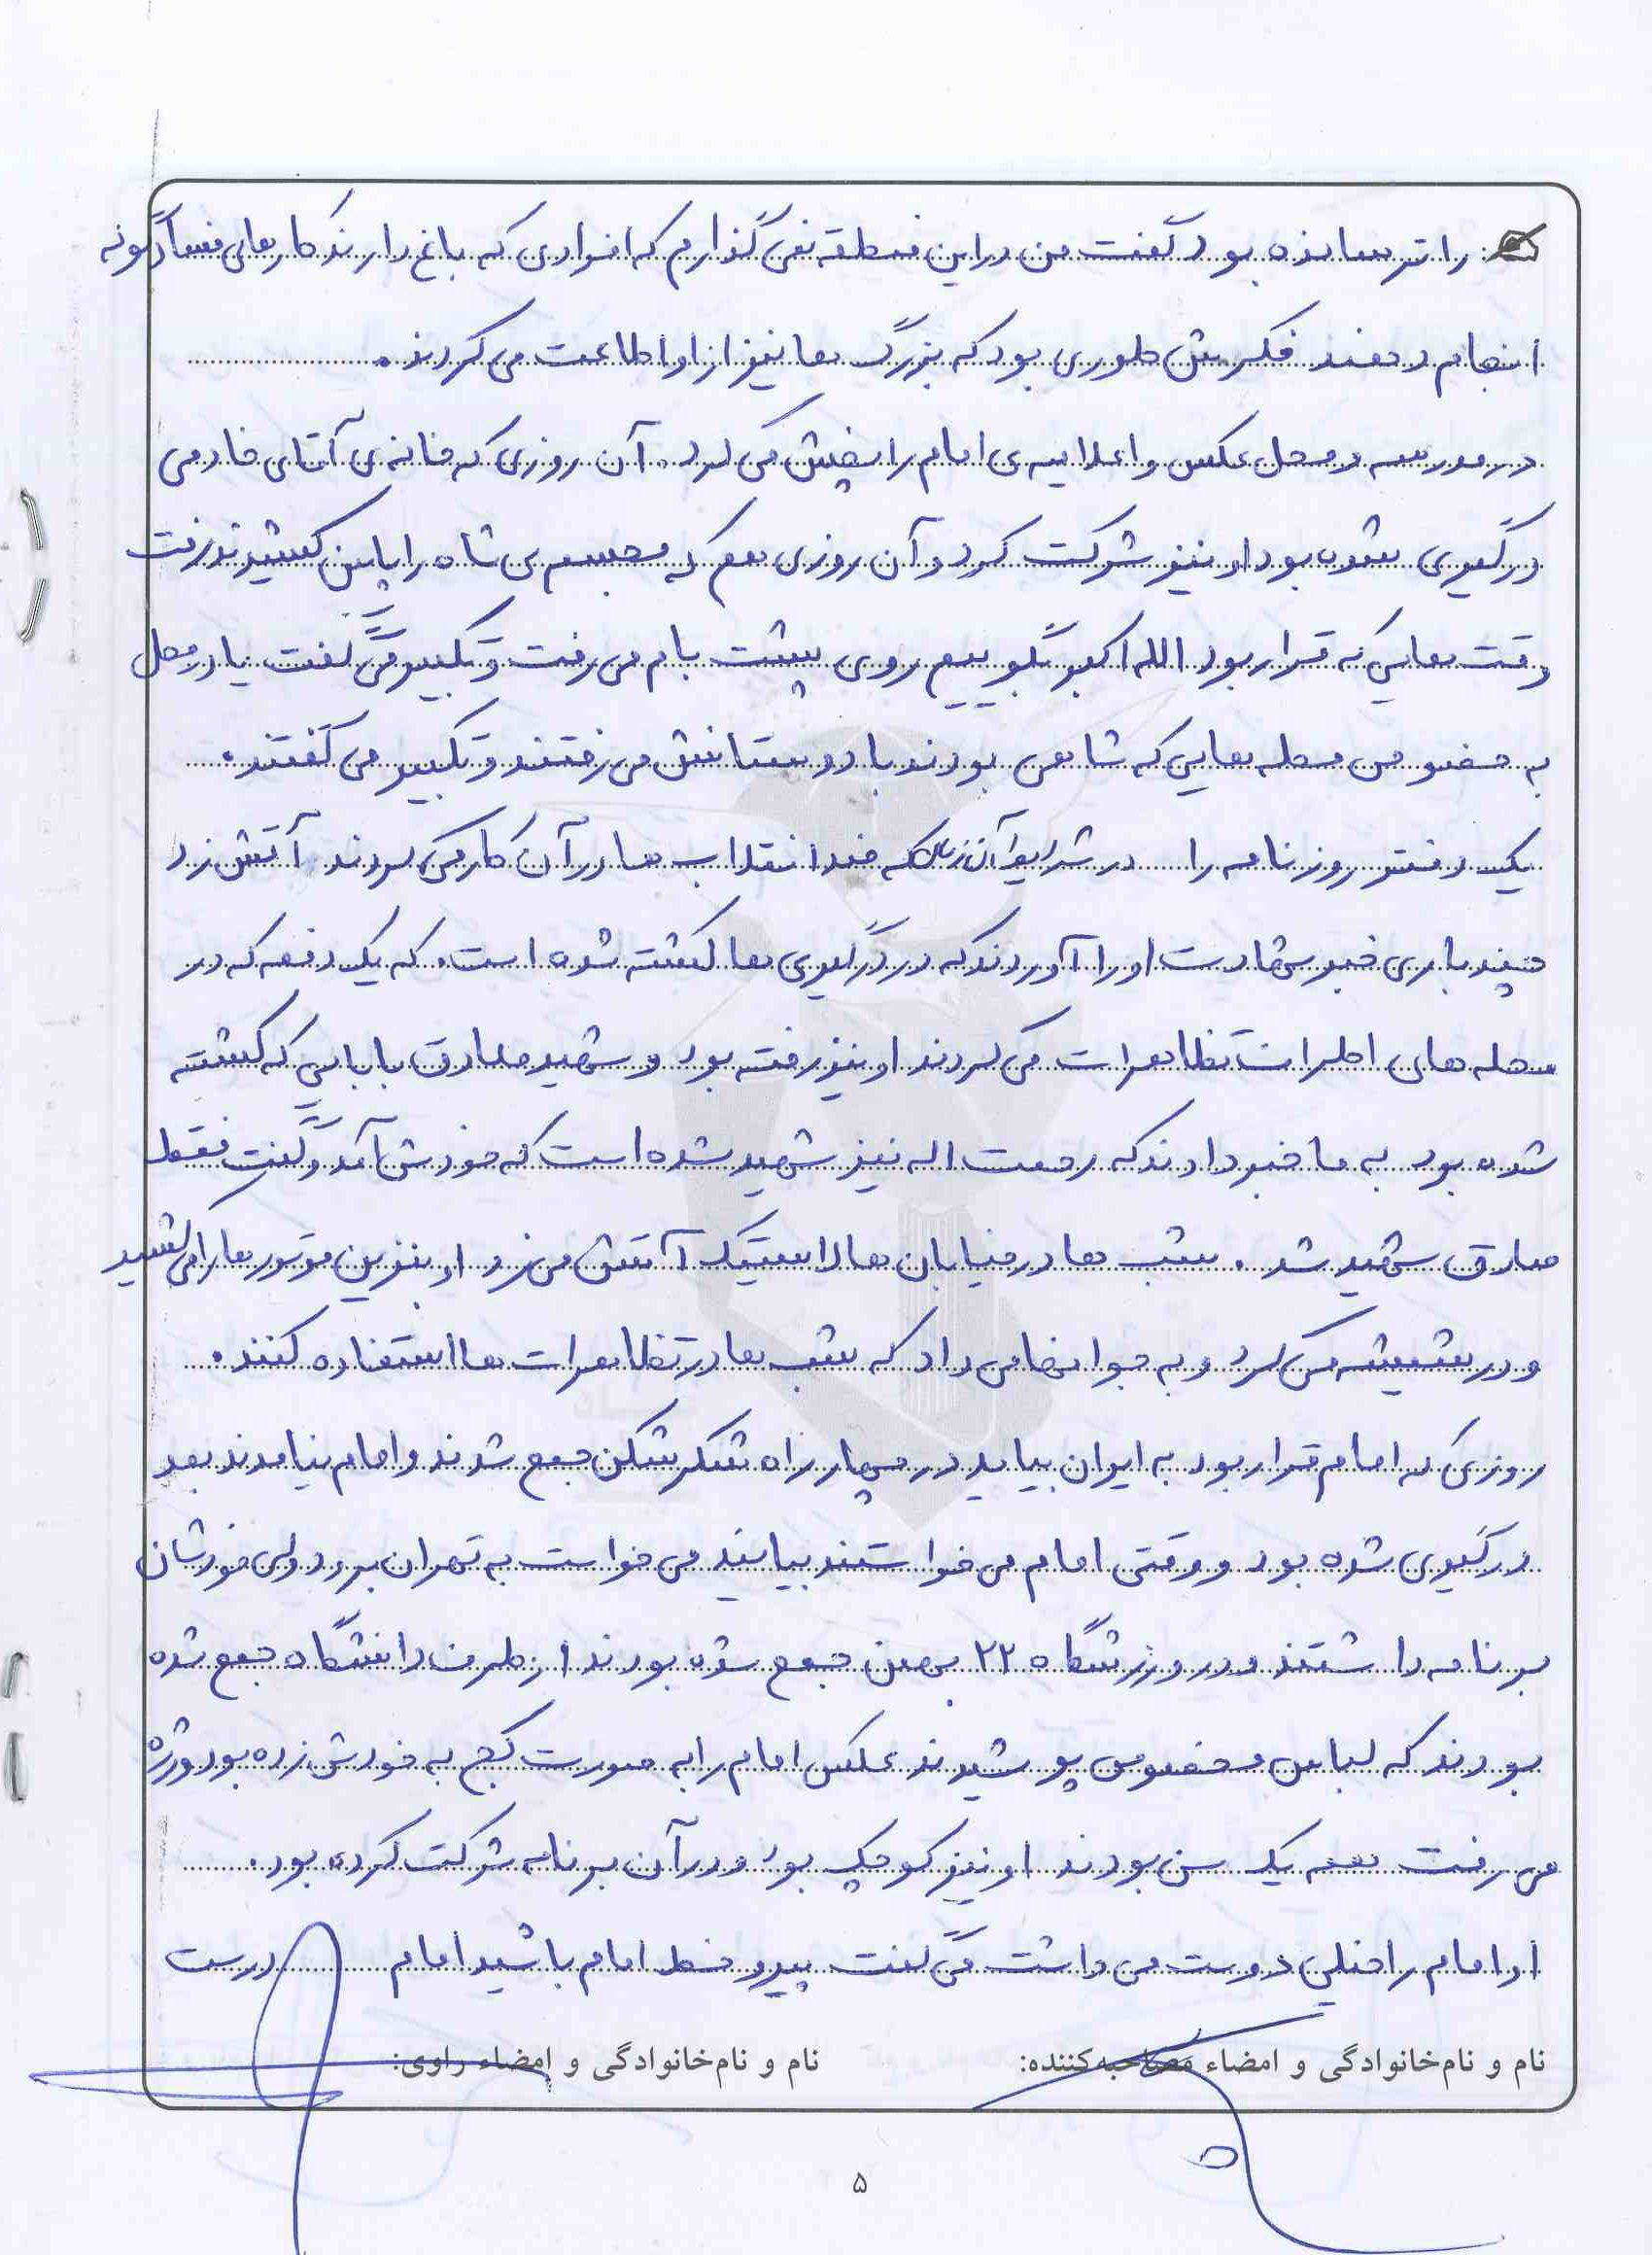 را ترسانده بود گفت من در این منطقه نمی گذارم که افرادی که باغ دارند کارهای فساد گونه
انجام دهند فکرش طوری بود که بزرگ ها نیز از او اطاعت می کردند.
در مدرسه و محل عکس و اعلامیه ی امام را پخش می کرد. آن روزی که خانه ی آقای خادمی
درگیری شده بود او نیز شرکت کرد و آن روزی هم که مجسمه ی شاه را پایین کشیدند رفت
وقت هایی که قرار بود الله اکبر بگوییم روی پشت بام می رفت و تکبیر می گفت یا در محل
به خصوص محله هایی که شاهی بودند با دوستانش می رفتند و تکبیر می گفتند.
یک دفتر روزنامه را در شرایط آن زمان که ضد انقلاب ها در آن کار می کردند آتش زد
چند باری خبر شهادت او را آوردند که در درگیری ها کشته شده است. که یک دفعه که در
محله های اطراف تظاهرات می کردند او نیز رفته بود و شهید صادق بابایی که کشته
شده بود به ما خبر دادند که رحمت اله نیز شهید شده است که خودش آمد و گفت فقط
صادق شهید شد. شب ها در خیابان ها لاستیک آتش می زد و از بنزین موتورها را می کشید
و در شیشه می کرد و به جوانها می داد که شب ها در تظاهرات ها استفاده کنند.
روزی که امام قرار بود به ایران بیاید در چهار راه شکرشکن جمع شدند و امام نیامدند بعد
درگیری شده بود و وقتی امام می خواستند بیایند می خواست به تهران برود ولی خودشان
برنامه داشتند و در ورزشگاه ۲۲ بهمن جمع شده بودند از طرف دانشگاه جمع شده
بودند که لباس مخصوص پوشیدند عکس امام را به صورت کج به خودش زده بود و رژه
می رفت همه یک سن بودند او نیز کوچک بود و در آن برنامه شرکت کرده بود.
او امام را خیلی دوست می داشت می گفت پیرو خط امام باشید امام درست
نام و نام‌خانوادگی و امضاء مصاحبه‌کننده:
نام و نام‌خانوادگی و امضاء راوی:
۵